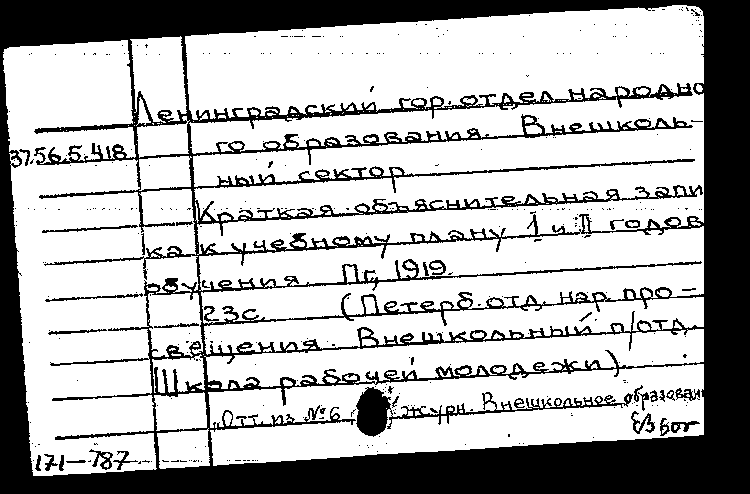 Ленинградский гор. отдел народно
37.56.5.418 го образования. Внешколь-
ный сектор
Краткая объяснительная запи
ка к учебному плану I и II годов
обучения. Пг, 1919.
23с. (Петерб. отд. нар. про-
свещения. Внешкольный п/отд.
Школа рабочей молодежи).
„Отт. из № 6 журн. Внешкольное образовани
171-787